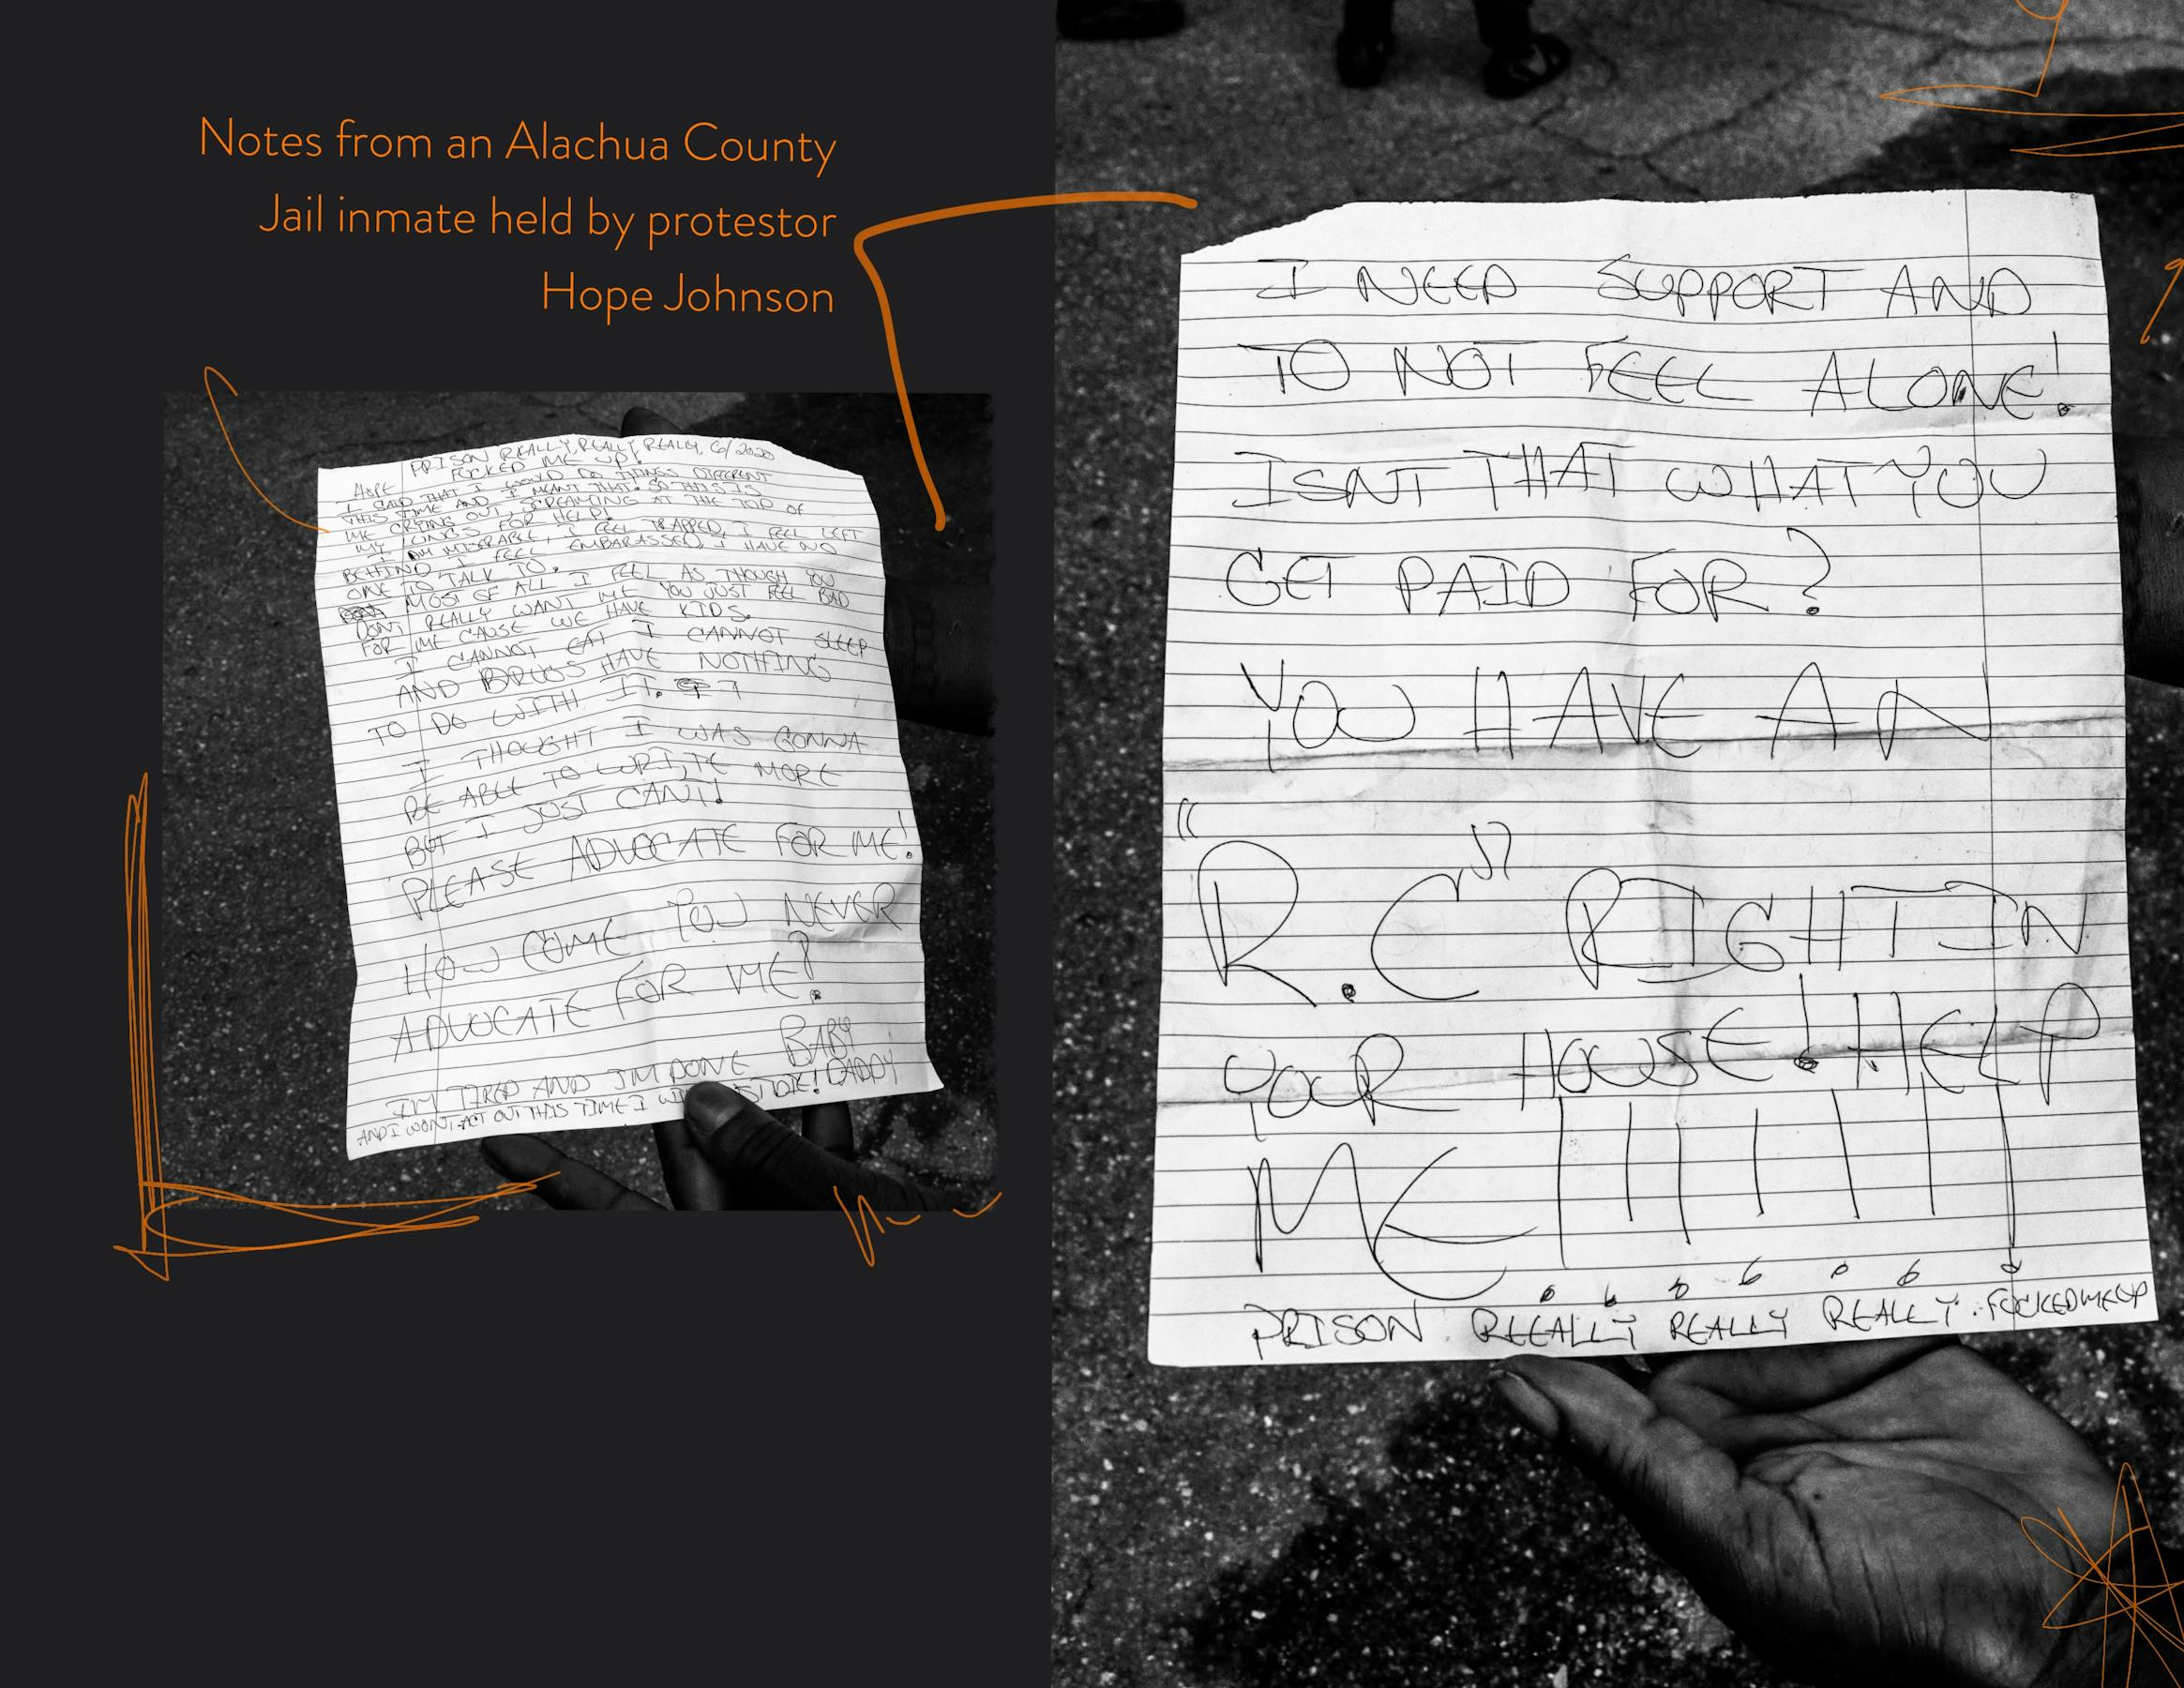 Notes from an Alachua County
Jail inmate held by protestor
Hope Johnson
PRISON REALLY, REALLY, REALLY, 6/2020
FUCKED ME UP!
HOPE
I SAID THAT I WOULD DO THINGS DIFFERENT
THIS TIME AND I MEANT THAT. SO THIS IS
ME CRYING OUT, SCREAMING AT THE TOP OF
MY LUNGS FOR HELP!
I AM MISERABLE, I FEEL TRAPPED, I FEEL LEFT
BEHIND I FEEL EMBARASSED, I HAVE NO
ONE TO TALK TO.
MOST OF ALL I FEEL AS THOUGH YOU
DONT REALLY WANT ME YOU JUST FEEL BAD
FOR ME CAUSE WE HAVE KIDS.
I CANNOT EAT I CANNOT SLEEP
AND DRUGS HAVE NOTHING
TO DO WITH IT.
I THOUGHT I WAS GONNA
BE ABLE TO WRITE MORE
BUT I JUST CANT!
PLEASE ADVOCATE FOR ME!
HOW COME YOU NEVER
ADVOCATE FOR ME?
IM TIRED AND IM DONE BABY
AND I WONT ACT OUT THIS TIME I DIE! DADDY
I NEED SUPPORT AND
TO NOT FEEL ALONE!
ISNT THAT WHAT YOU
GET PAID FOR?
YOU HAVE AN
"R.C" RIGHT IN
YOUR HOUSE! HELP
ME!!!!!!!
PRISON REEALLY REALLY REALLY FUCKED ME UP